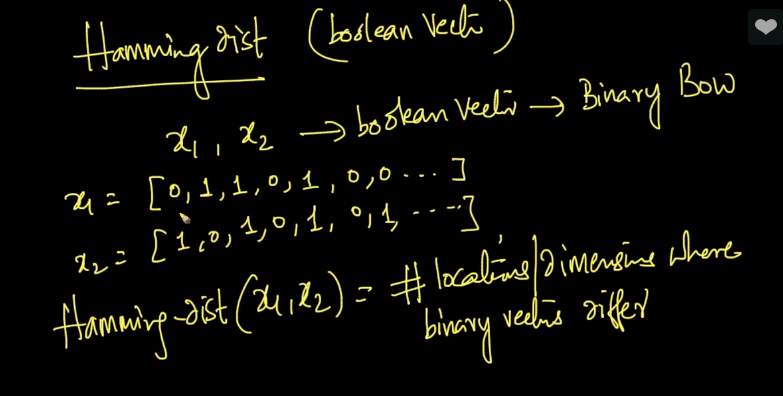 Hamming dist (boolean Vect)
x₁, x₂ → boolean Vect → Binary Bow
x₁ = [0,1,1,0,1,0,0 ... ]
x₂ = [1,0,1,0,1,0,1, ... ]
Hamming-dist(x₁,x₂) = # locations/dimensions where
binary vectors differ